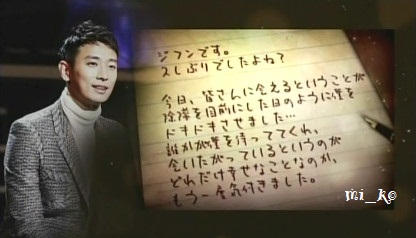 ジフンです。
久しぶりでしたよね?
今日、皆さんに会えるということが
除隊を目前にした日のように僕を
ドキドキさせました…
誰かが僕を待っててくれ、
会いたがっているというのが
どれだけ幸せなことなのか、
もう一度気付きました。
mi_k©